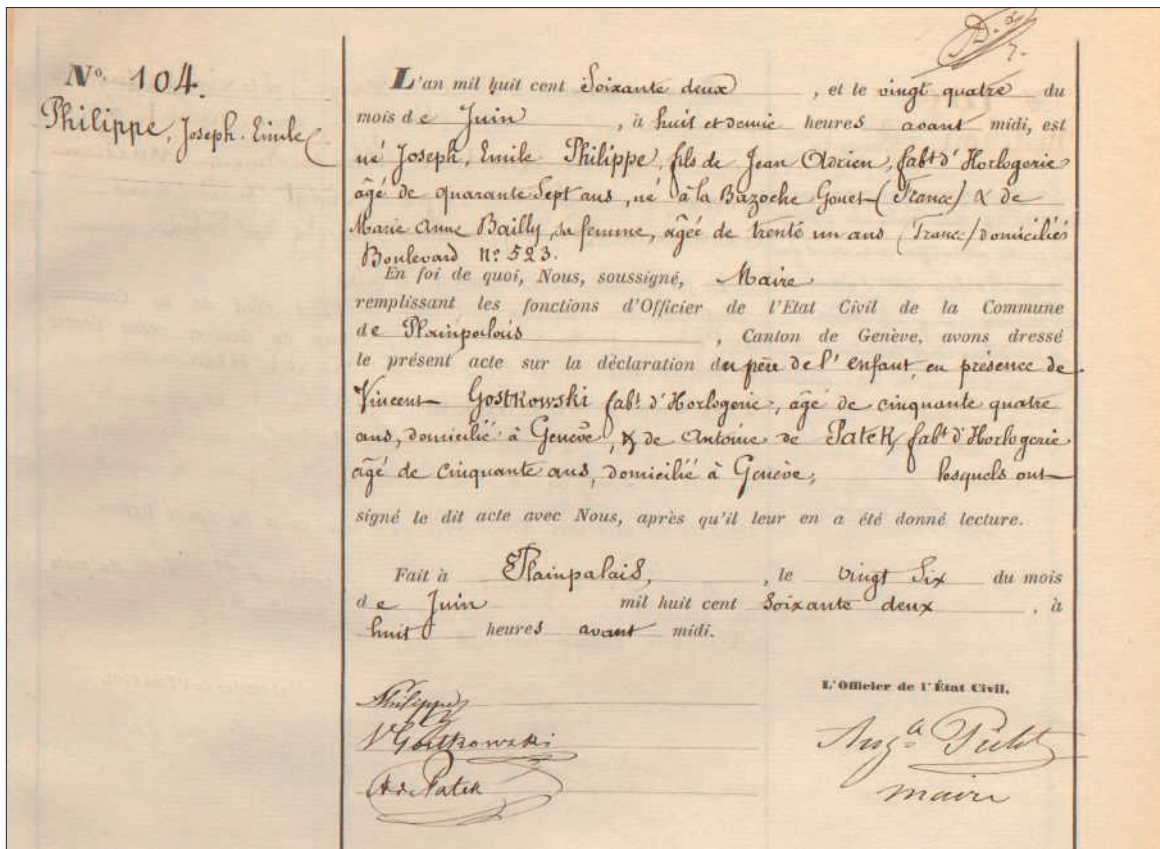 Nº 104.
Philippe, Joseph-Emile
L'an mil huit cent Soixante deux , et le vingt quatre du
mois de Juin , à huit et demie heures avant midi, est
né Joseph, Emile Philippe, fils de Jean Adrien, fabt d'Horlogerie
âgé de quarante Sept ans, né à la Bazoche Gouet (France) & de
Marie Anne Bailly, sa femme, âgée de trente un ans (France) domiciliés
Boulevard nº 523.
En foi de quoi, Nous, soussigné, Maire
remplissant les fonctions d'Officier de l'Etat Civil de la Commune
de Plainpalais , Canton de Genève, avons dressé
le présent acte sur la déclaration du père de l'enfant, en présence de
Vincent Gostkowski fabt d'Horlogerie, âgé de cinquante quatre
ans, domicilié à Genève, & de Antoine de Patek, fabt d'Horlogerie
âgé de cinquante ans, domicilié à Genève, lesquels ont
signé le dit acte avec Nous, après qu'il leur en a été donné lecture.
Fait à Plainpalais, , le vingt Six du mois
de Juin mil huit cent Soixante deux , à
huit heures avant midi.
L'Officier de l'État Civil,
Philippe
V Gostkowski
A de Patek
maire